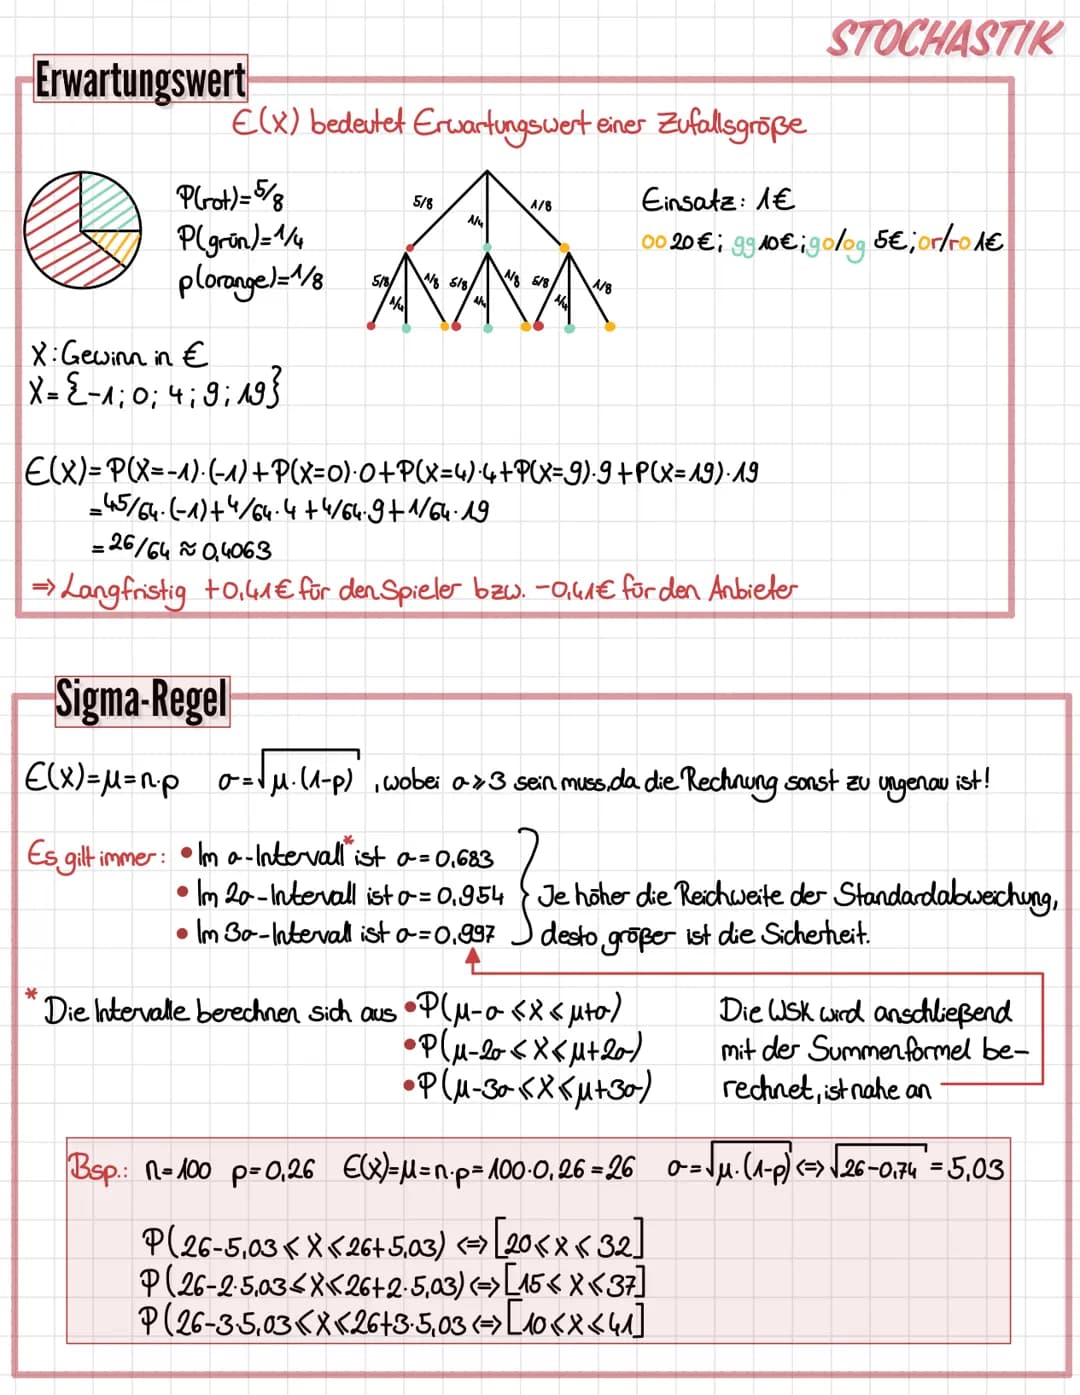 STOCHASTIK
Erwartungswert
E(X) bedeutet Erwartungswert einer Zufallsgröße
P(rot)=5/8
P(grün)=1/4
p(orange)=1/8
5/8
1/4
1/8
5/8
1/4
1/8
5/8
1/4
1/8
5/8
1/4
1/8
Einsatz: 1€
oo 20€; gg 10€; go/og 5€; or/ro 1€
X: Gewinn in €
X= {-1; 0; 4; 9; 19}
E(X)= P(X=-1)·(-1)+P(X=0)·0+P(X=4)·4+P(X=9)·9+P(X=19)·19
=45/64·(-1)+4/64·4+4/64·9+1/64·19
=26/64≈0,4063
⇒ Langfristig +0,41€ für den Spieler bzw. -0,41€ für den Anbieter
Sigma-Regel
E(X)=μ=n·p σ=√μ·(1-p) , wobei σ≥3 sein muss, da die Rechnung sonst zu ungenau ist!
Es gilt immer: • Im σ-Intervall* ist σ=0,683
• Im 2σ-Intervall ist σ=0,954
• Im 3σ-Intervall ist σ=0,997
Je höher die Reichweite der Standardabweichung,
desto größer ist die Sicherheit.
* Die Intervalle berechnen sich aus • P(μ-σ≤X≤μ+σ)
• P(μ-2σ≤X≤μ+2σ)
• P(μ-3σ≤X≤μ+3σ)
Die WSK wird anschließend
mit der Summenformel be-
rechnet, ist nahe an
Bsp.: n=100 p=0,26 E(X)=μ=n·p=100·0,26=26 σ=√μ·(1-p) ⇔ √26-0,74 = 5,03
P(26-5,03≤X≤26+5,03) ⇔ [20≤X≤32]
P(26-2·5,03≤X≤26+2·5,03) ⇔ [15≤X≤37]
P(26-3·5,03≤X≤26+3·5,03 ⇔ [10≤X≤41]